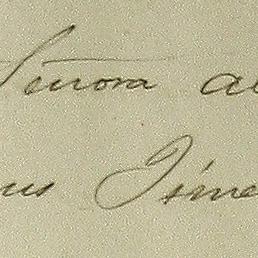 Señora a
us Jime